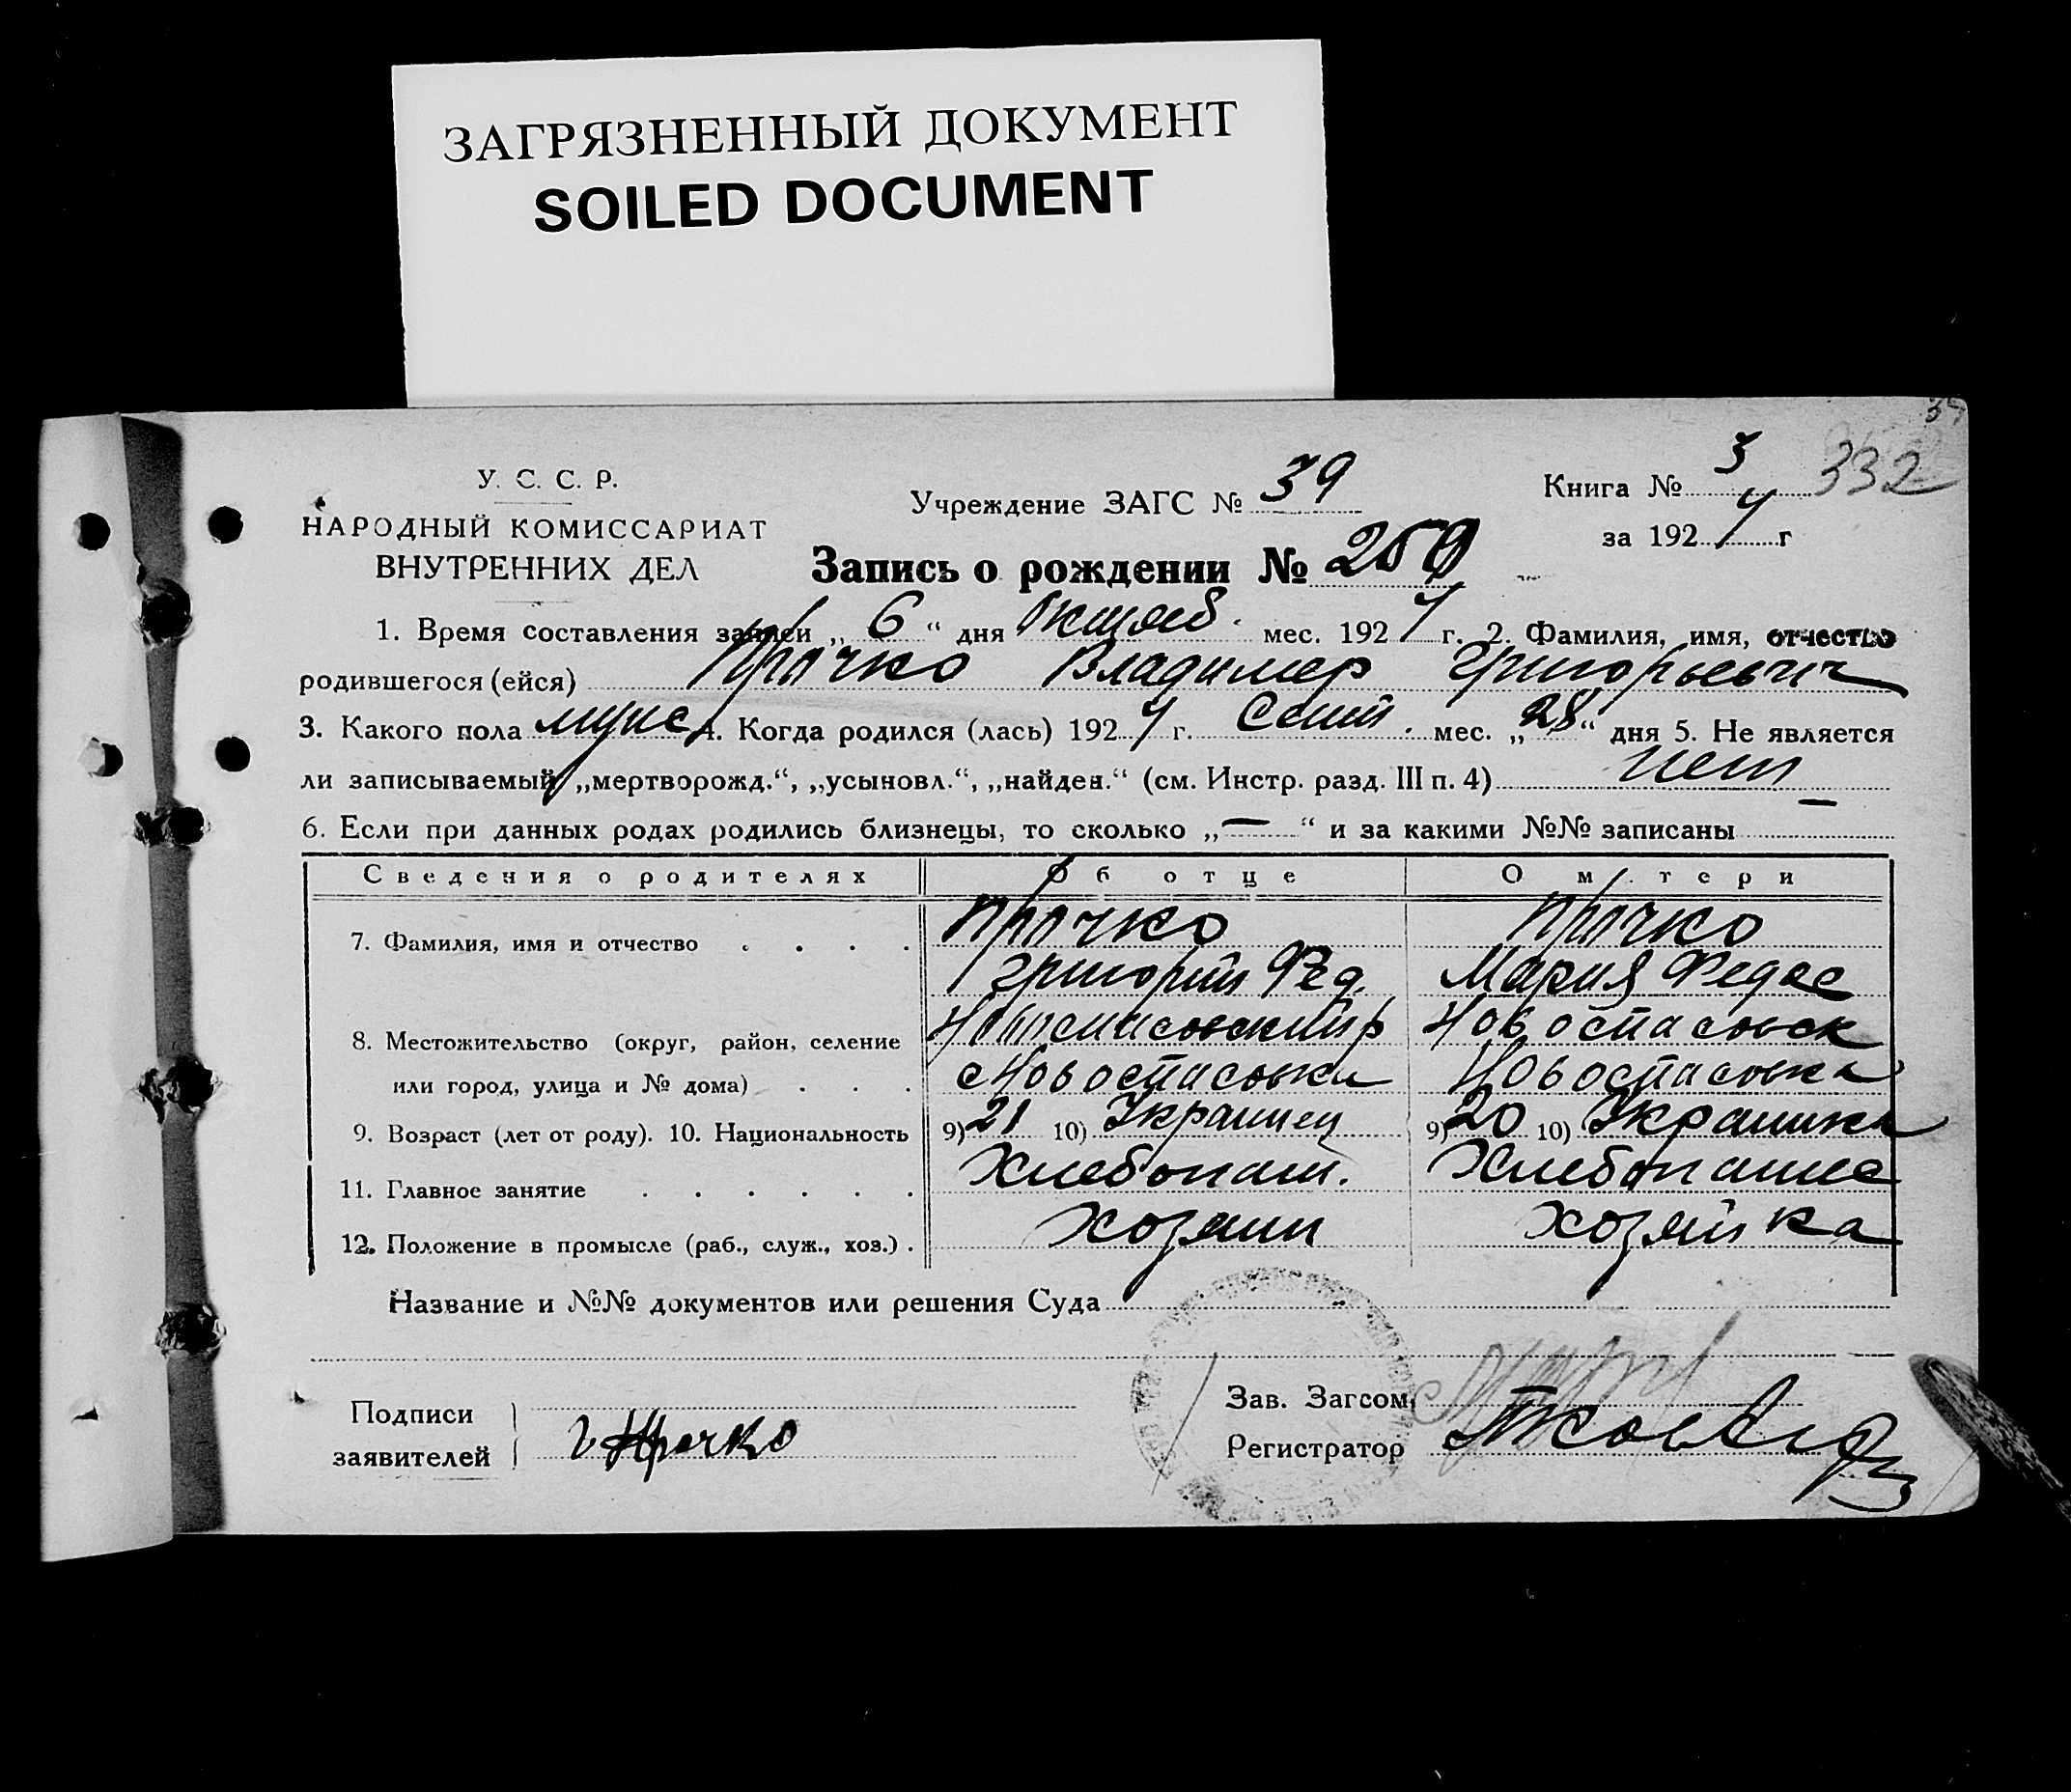 ЗАГРЯЗНЕННЫЙ ДОКУМЕНТ
SOILED DOCUMENT
У. С. С. Р.
НАРОДНЫЙ КОМИССАРИАТ
ВНУТРЕННИХ ДЕЛ
Учреждение ЗАГС № 39
Книга № 3 332
за 192 г
Запись о рождении № 259
1. Время составления записи „ 6 “ дня Октяб. мес. 192 г. 2. Фамилия, имя, отчество
родившегося (ейся) Прочко Владимер Григорьевич
3. Какого пола муж 4. Когда родился (лась) 192 г. Сент. мес. „ 28 “ дня 5. Не является
ли записываемый „мертворожд.“, „усыновл.“, „найден.“ (см. Инстр. разд. III п. 4) нет
6. Если при данных родах родились близнецы, то сколько „ — “ и за какими №№ записаны —
Сведения о родителях Об отце О матери
7. Фамилия, имя и отчество . . . . Прочко Прочко
Григорий Фед. Мария Федос
8. Местожительство (округ, район, селение Новоспасовский р Новоспасовск
или город, улица и № дома) . . . с Новоспасовка Новоспасовка
9. Возраст (лет от роду). 10. Национальность 9) 21 10) Украинец 9) 20 10) Украинка
11. Главное занятие . . . . . . Хлебопаш. Хлебопашес
12. Положение в промысле (раб., служ., хоз.) . хозяин хозяйка
Название и №№ документов или решения Суда
Подписи
заявителей г Прочко
Зав. Загсом
Регистратор